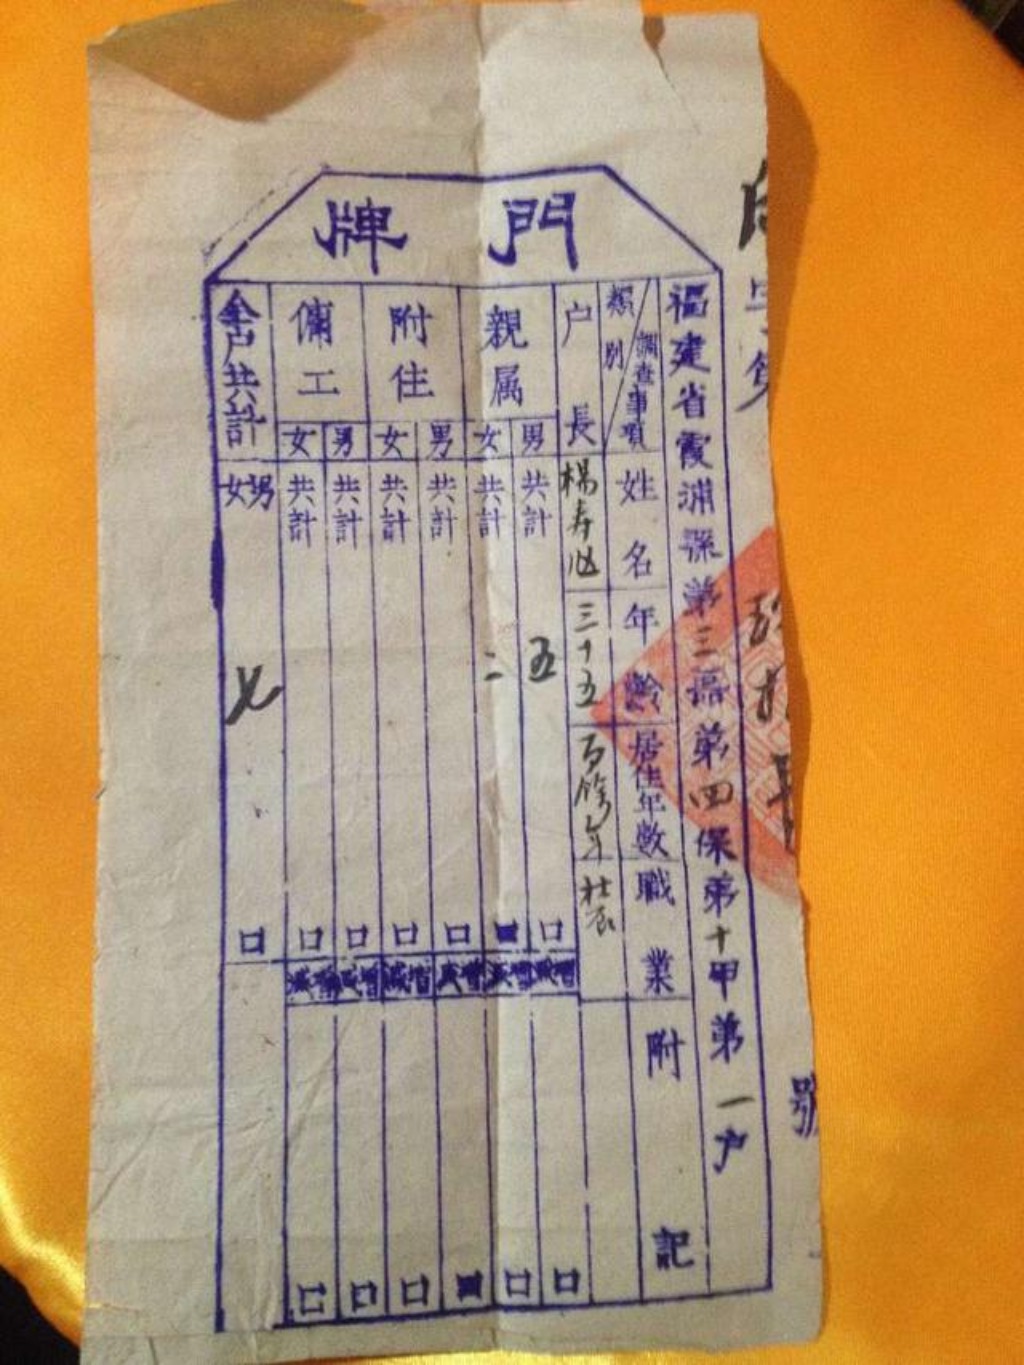 門牌
號
福建省霞浦縣第三區第四保第十甲第一户
類別
調查事項
姓名
年齡
居住年數
職業
附記
户長
楊寿
三十五
百餘年
親属
男
共計
五
口
增減
口
女
共計
二
口
增減
口
附住
男
共計
口
增減
口
女
共計
口
增減
口
傭工
男
共計
口
增減
口
女
共計
口
增減
口
全户共計
男女
七
口